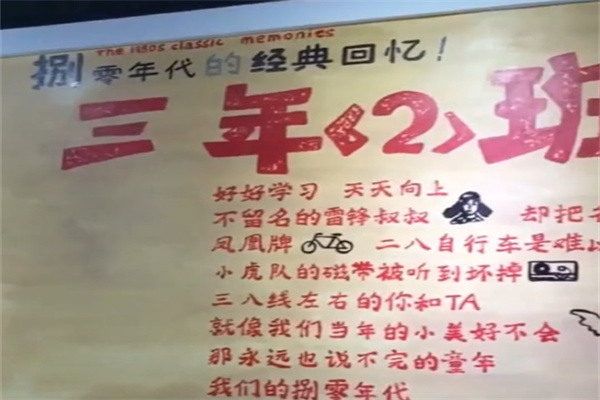 The 1980s classic memories
捌零年代的经典回忆!
三年<2>班
好好学习 天天向上
不留名的雷锋叔叔 却把
凤凰牌 二八自行车是难
小虎队的磁带被听到坏掉
三八线左右的你和TA
就像我们当年的小美好不会
那永远也说不完的童年
我们的捌零年代